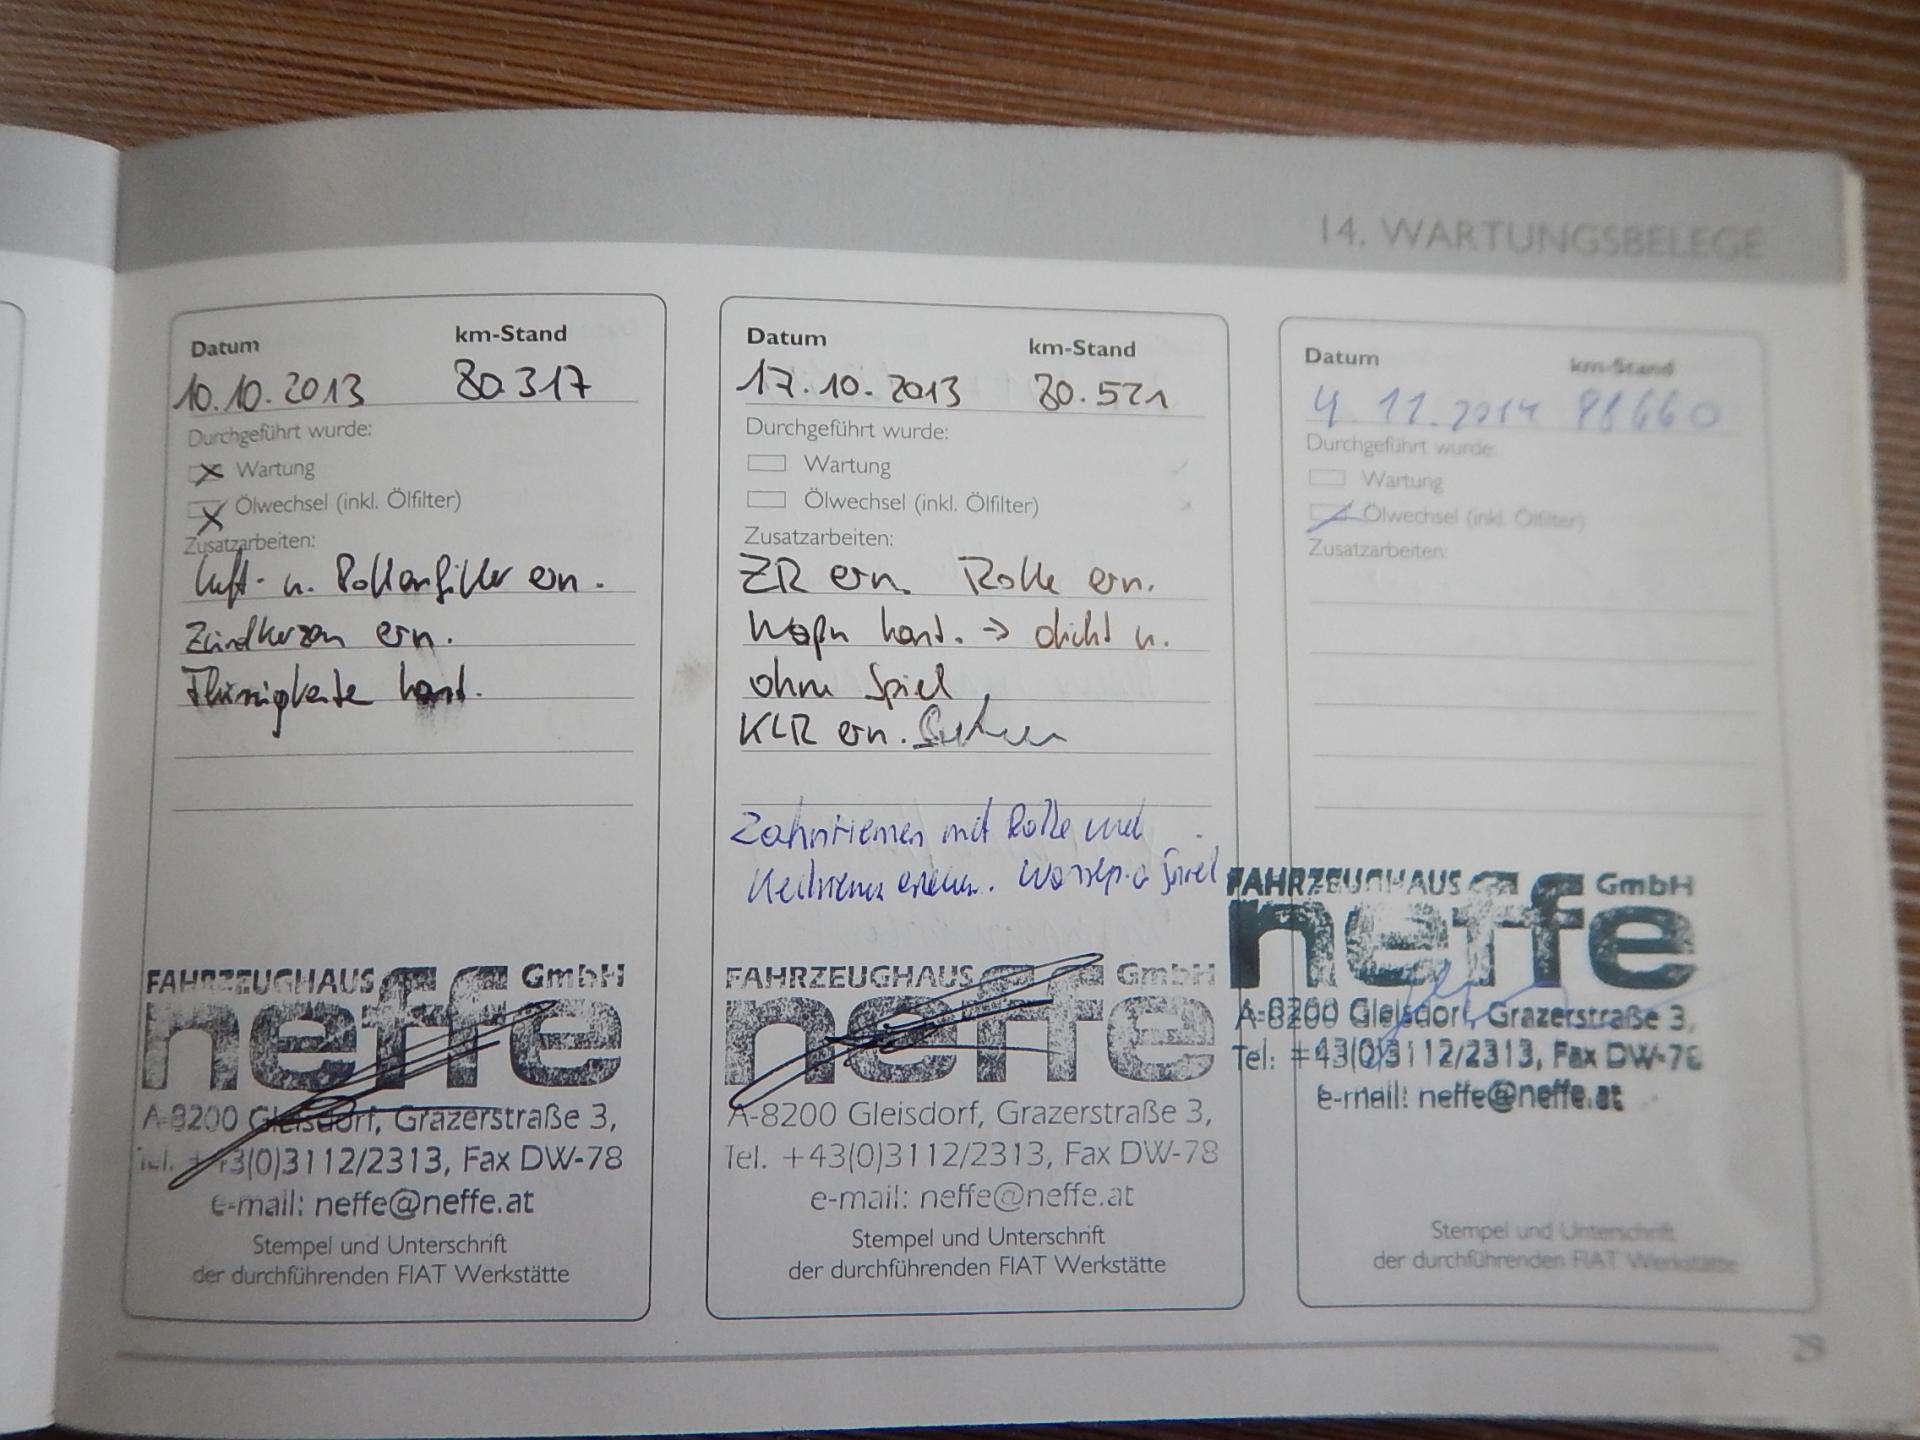 14. WARTUNGSBELEGE
Datum km-Stand
10.10.2013 80.317
Durchgeführt wurde:
Wartung
Ölwechsel (inkl. Ölfilter)
Zusatzarbeiten:
Luft- u. Pollenfilter ern.
Zündkerzen ern.
FAHRZEUGHAUS GmbH
neffe
A-8200 Gleisdorf, Grazerstraße 3,
Tel. +43(0)3112/2313, Fax DW-78
e-mail: neffe@neffe.at
Stempel und Unterschrift
der durchführenden FIAT Werkstätte
Datum km-Stand
17.10.2013 80.521
Durchgeführt wurde:
Wartung
Ölwechsel (inkl. Ölfilter)
Zusatzarbeiten:
ZR ern. Rolle ern.
→ dicht u.
ohne Spiel
KLR ern.
Zahnriemen mit Rolle und
FAHRZEUGHAUS GmbH
neffe
A-8200 Gleisdorf, Grazerstraße 3,
Tel. +43(0)3112/2313, Fax DW-78
e-mail: neffe@neffe.at
Stempel und Unterschrift
der durchführenden FIAT Werkstätte
Datum km-Stand
4 11.2014 88660
Durchgeführt wurde:
Wartung
Ölwechsel (inkl. Ölfilter)
Zusatzarbeiten:
FAHRZEUGHAUS GmbH
neffe
A-8200 Gleisdorf, Grazerstraße 3,
Tel: +43(0)3112/2313, Fax DW-78
e-mail: neffe@neffe.at
Stempel und Unterschrift
der durchführenden FIAT Werkstätte
29